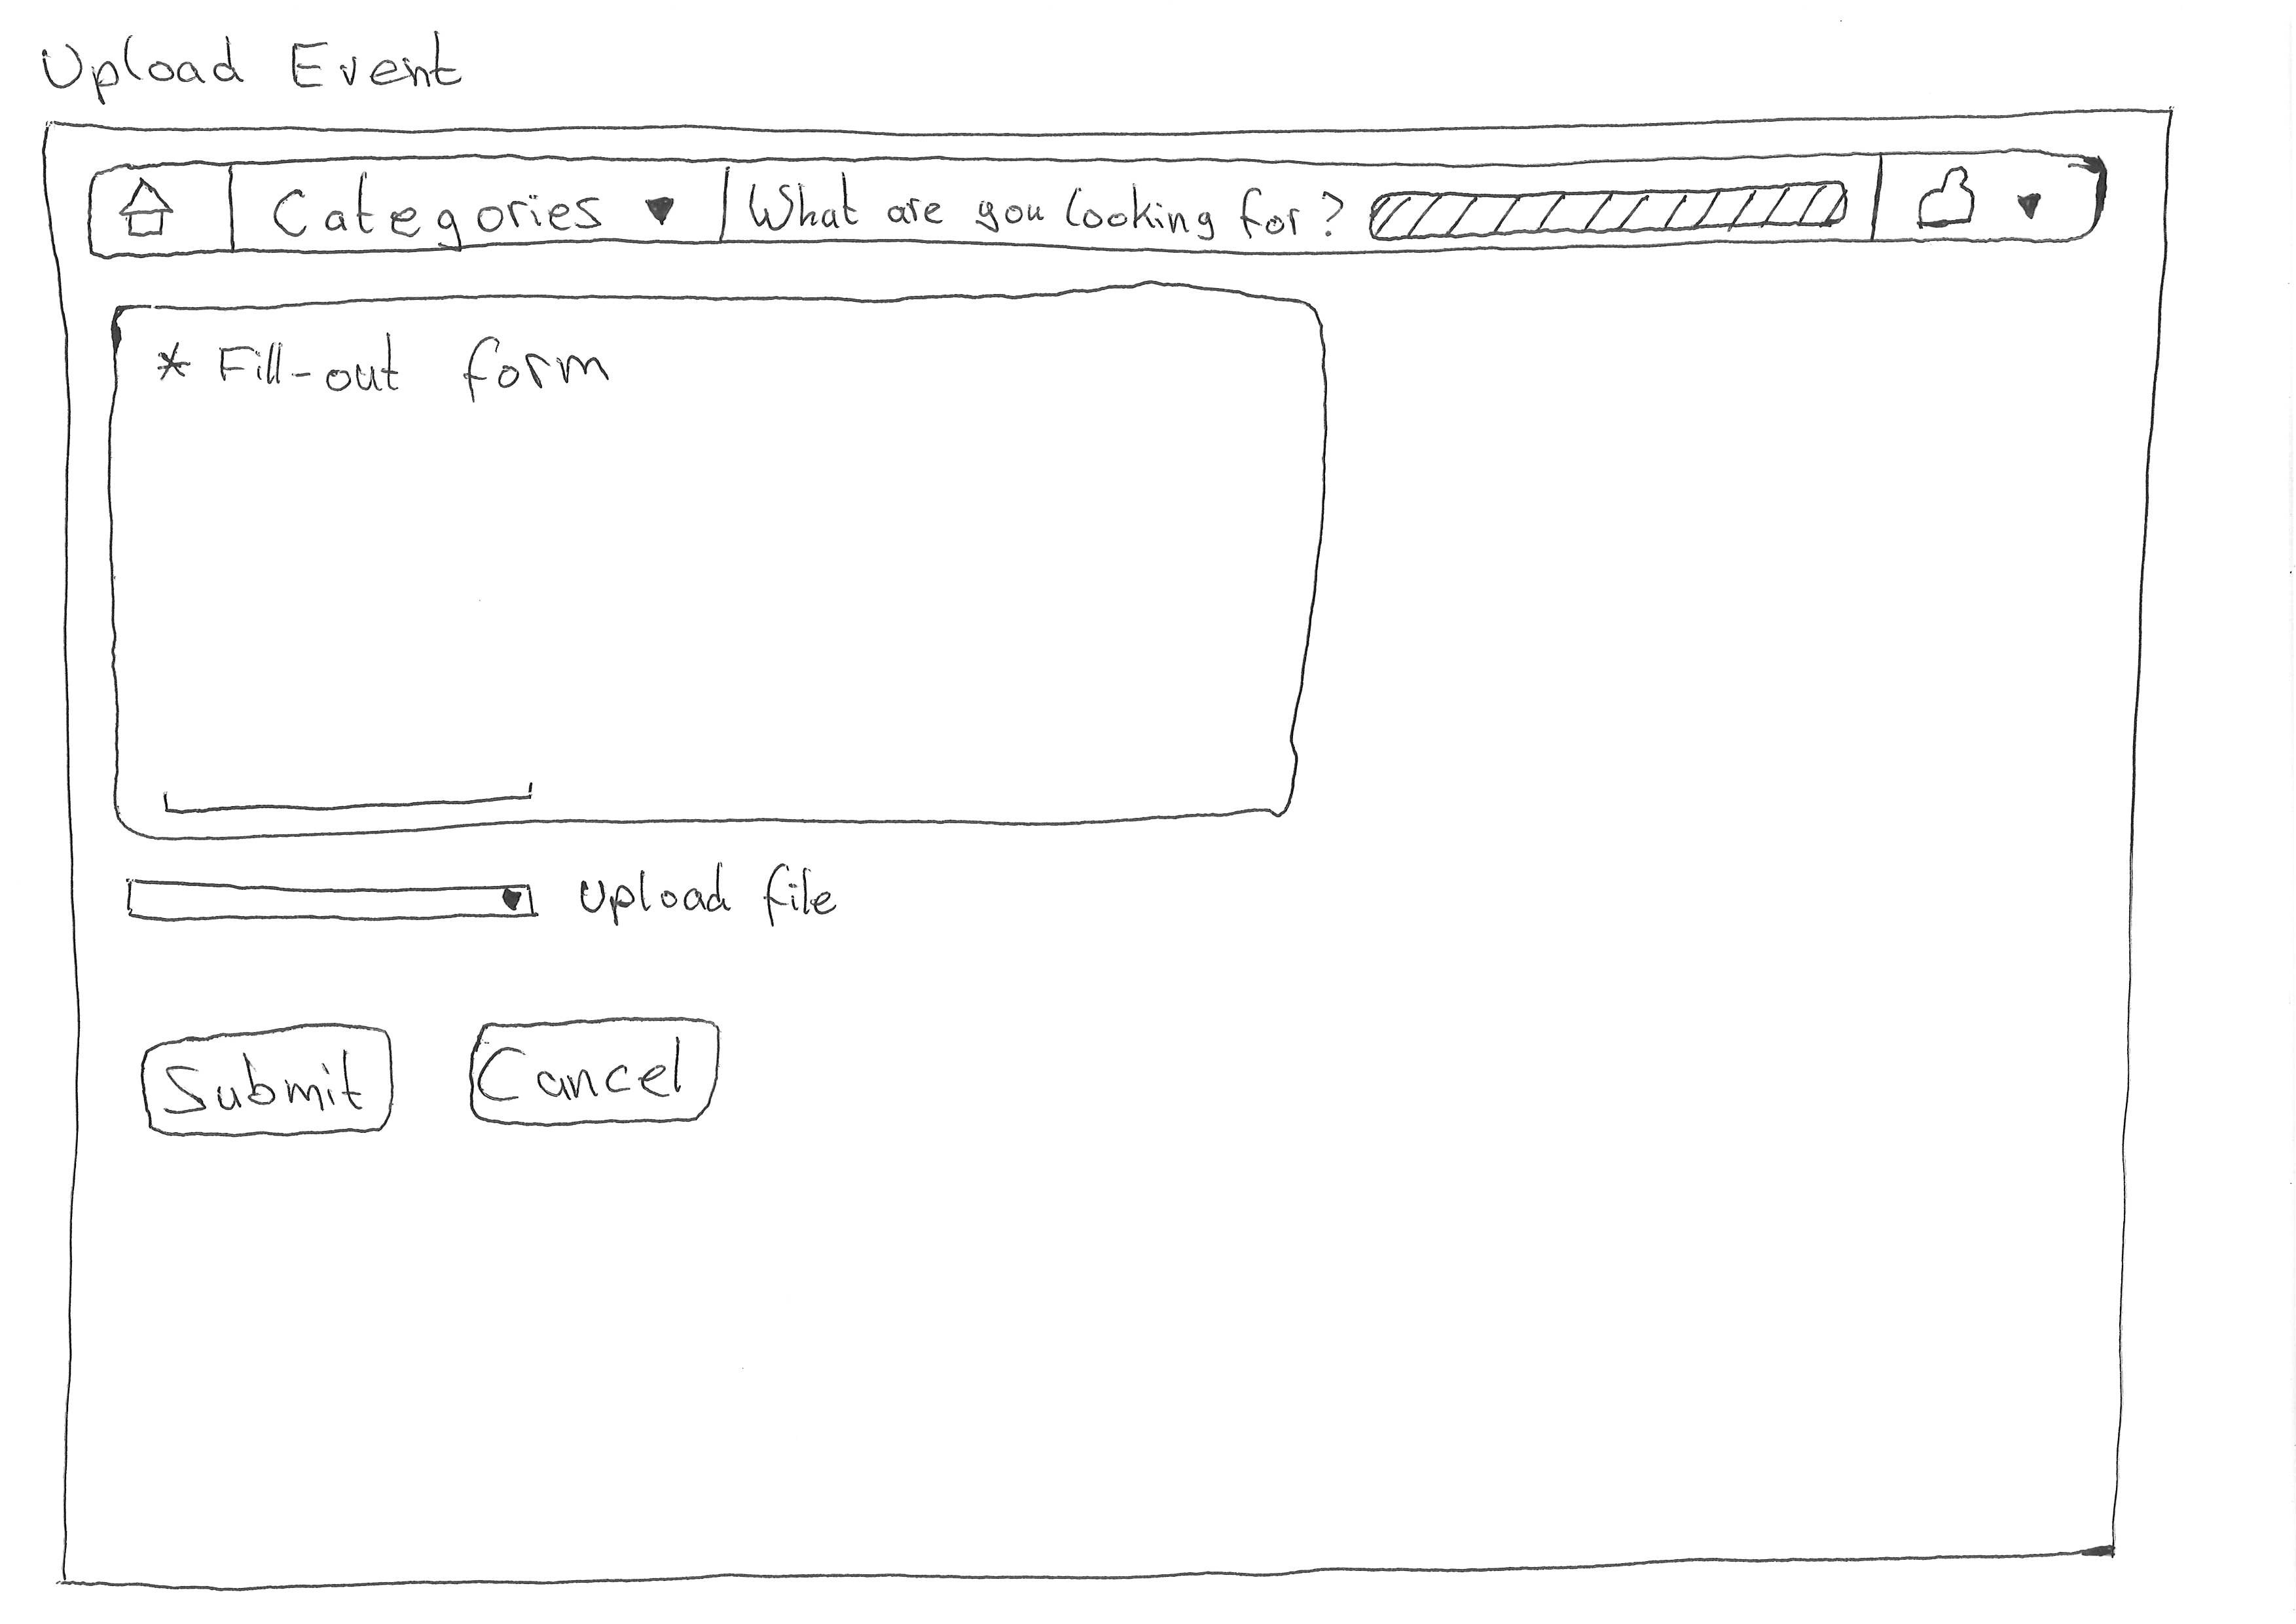 Upload Event
Categories What are you looking for?
* Fill-out form
Upload file
Submit Cancel